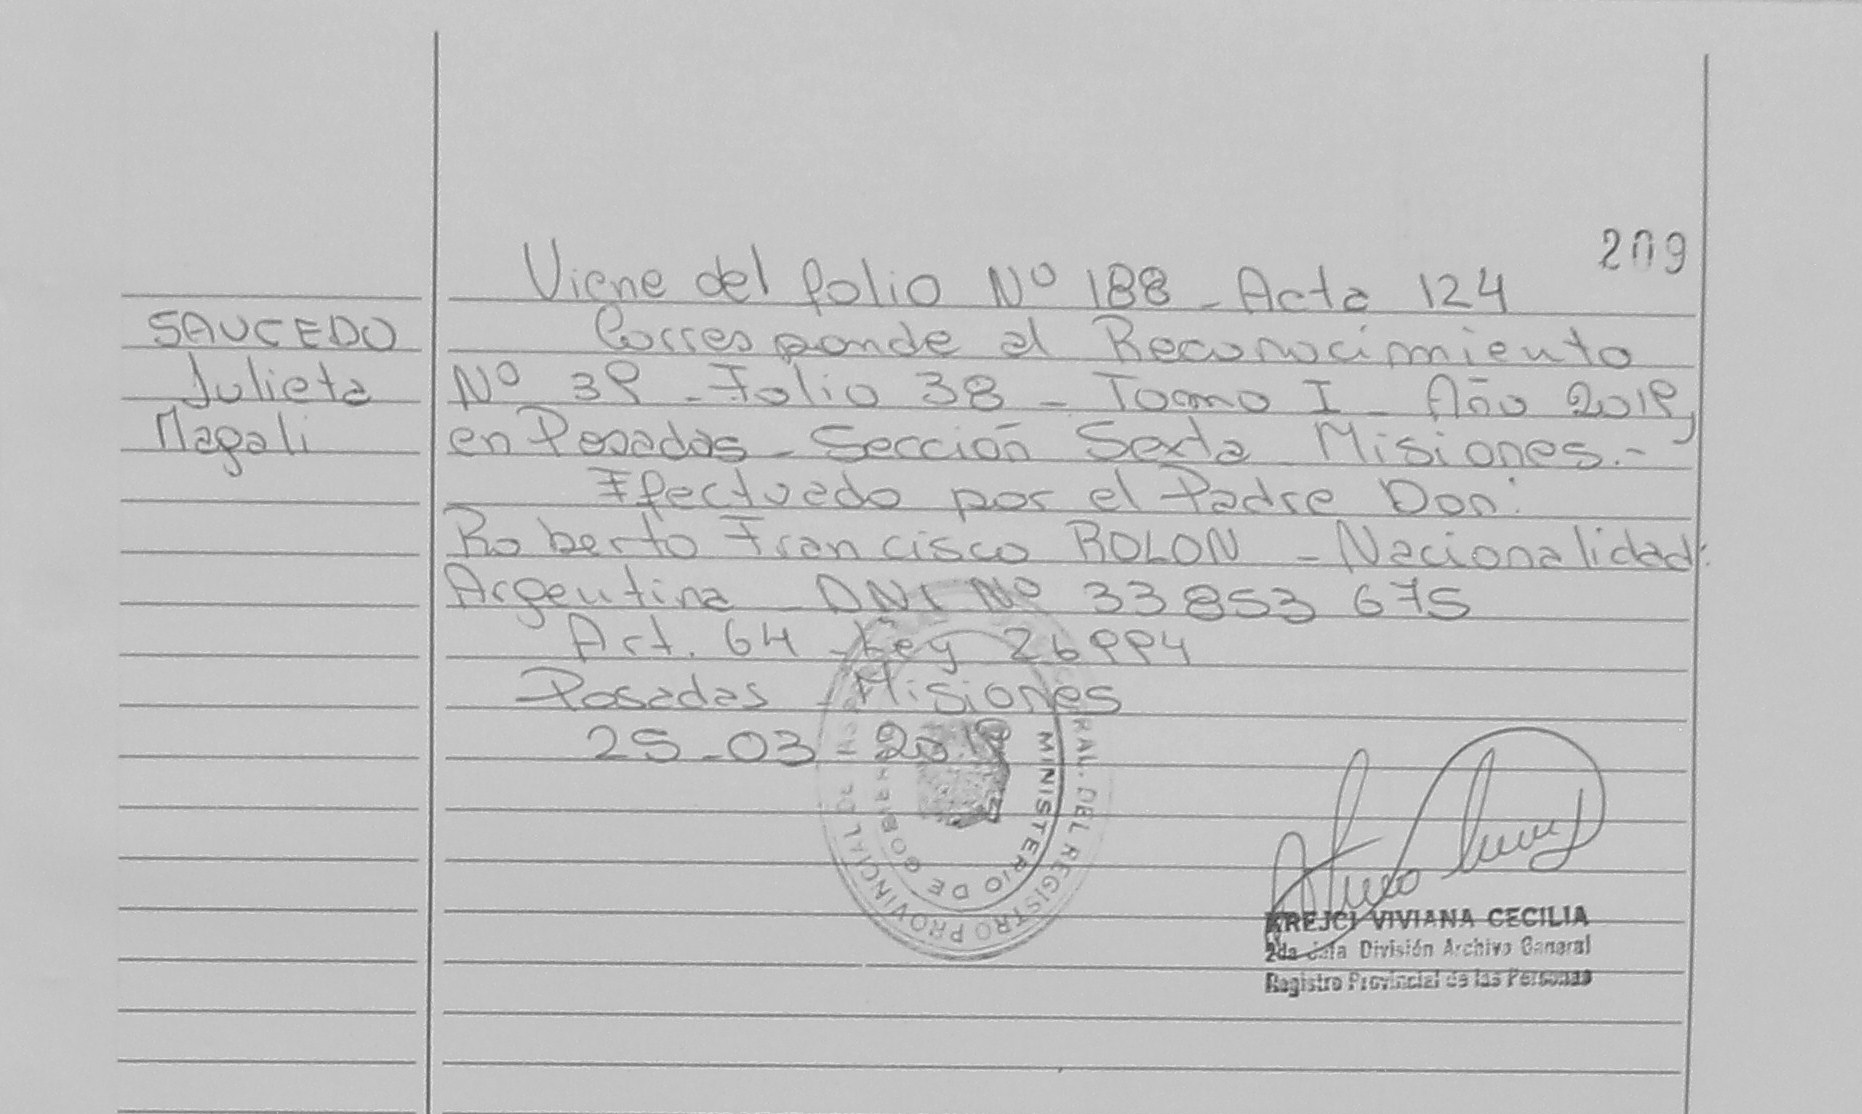 209
Viene del folio Nº 188 - Acta 124
SAUCEDO
Julieta
Magali
Corresponde al Reconocimiento
Nº 39 - Folio 38 - Tomo I - Año 2019,
en Posadas - Sección Sexta Misiones.-
Efectuado por el Padre Don:
Roberto Francisco ROLON - Nacionalidad:
Argentina - DNI Nº 33853675
Art. 64 Ley 26994
Posadas - Misiones
25-03-2019
RAL. DEL REGISTRO PROVINCIAL DE
MINISTERIO DE GOBIERN
KREJCI VIVIANA CECILIA
2da Jefa División Archivo General
Registro Provincial de las Personas